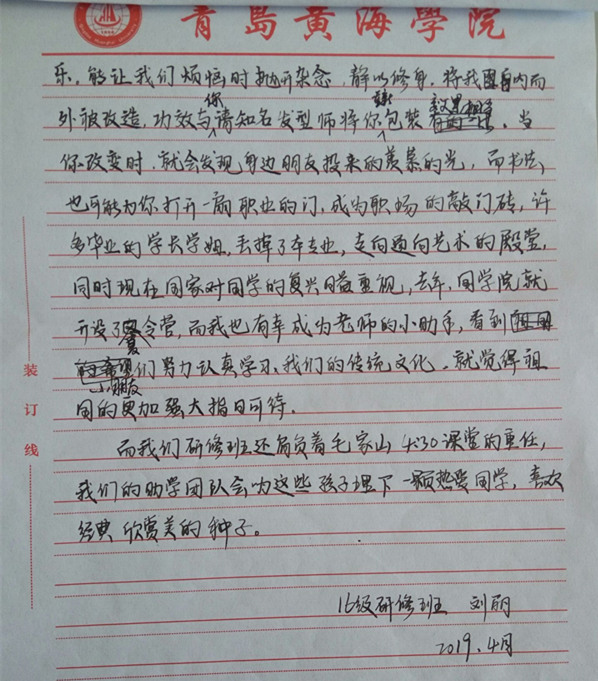 青島黄海學院
乐。能让我们烦恼时抛开杂念，静以修身，将我由内而
外被改造，功效与你请知名发型师将你包装 。当
你改变时，就会发现身边朋友投来的羡慕的光，而书法，
也可能为你打开一扇职业的门，成为职场的敲门砖，许
多毕业的学长学姐，丢掉了本专业，走向通向艺术的殿堂，
同时现在国家对国学的复兴日益重视，去年，国学院就
开设了夏令营，而我也有幸成为老师的小助手，看到
小朋友们努力认真学习我们的传统文化、就觉得祖
国的更加强大指日可待。
而我们研修班还肩负着毛家山4:30课堂的重任，
我们的助学团队会为这些孩子埋下一颗热爱国学，喜欢
经典欣赏美的种子。
16级研修班 刘丽
2019.4月
装
订
线